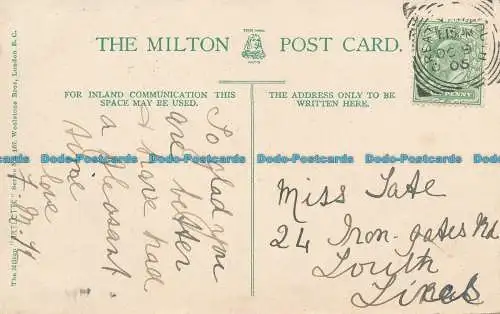 THE MILTON POST CARD.
FOR INLAND COMMUNICATION THIS
SPACE MAY BE USED.
THE ADDRESS ONLY TO BE
WRITTEN HERE.
So glad you
are better
I have had
a pleasant
time
love
Miss Tate
24 Iron-gates Rd
Louth
Lincs
PENNY
OC 9
05
The Milton
Woodstone Bros, London E.C.
Dodo-Postcards Dodo-Postcards Dodo-Postcards Dodo-Postcards